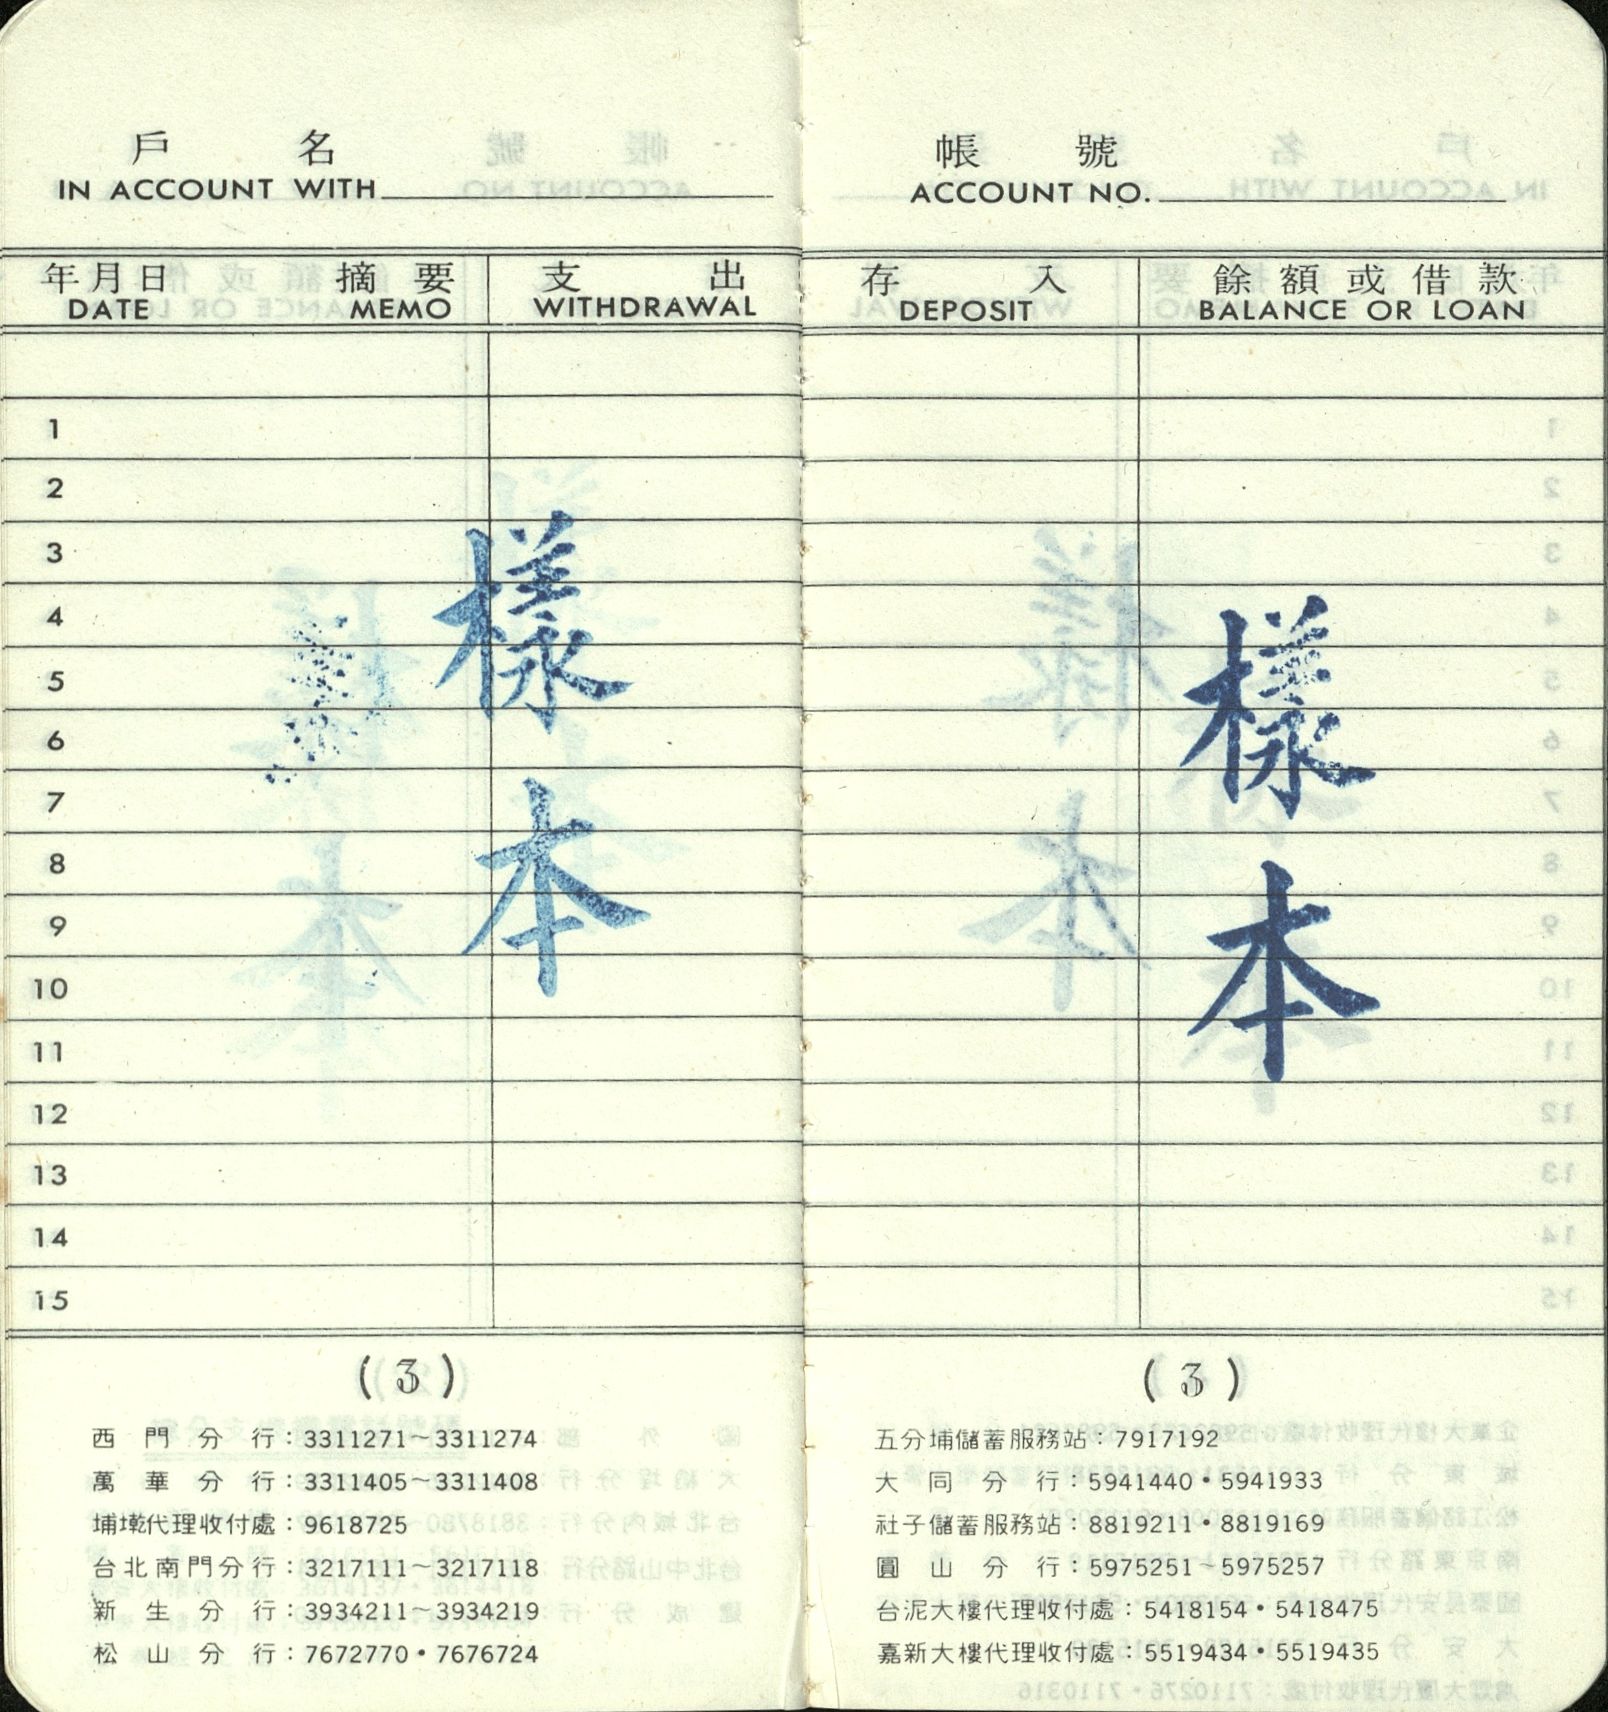 戶 名
IN ACCOUNT WITH
年月日 摘要 支出
DATE MEMO WITHDRAWAL
1
2
3
4
5
6
7
8
9
10
11
12
13
14
15
樣本
(3)
西門分行：3311271～3311274
萬華分行：3311405～3311408
埔墘代理收付處：9618725
台北南門分行：3217111～3217118
新生分行：3934211～3934219
松山分行：7672770・7676724
帳號
ACCOUNT NO.
存入 餘額或借款
DEPOSIT BALANCE OR LOAN
樣本
(3)
五分埔儲蓄服務站：7917192
大同分行：5941440・5941933
社子儲蓄服務站：8819211・8819169
圓山分行：5975251～5975257
台泥大樓代理收付處：5418154・5418475
嘉新大樓代理收付處：5519434・5519435